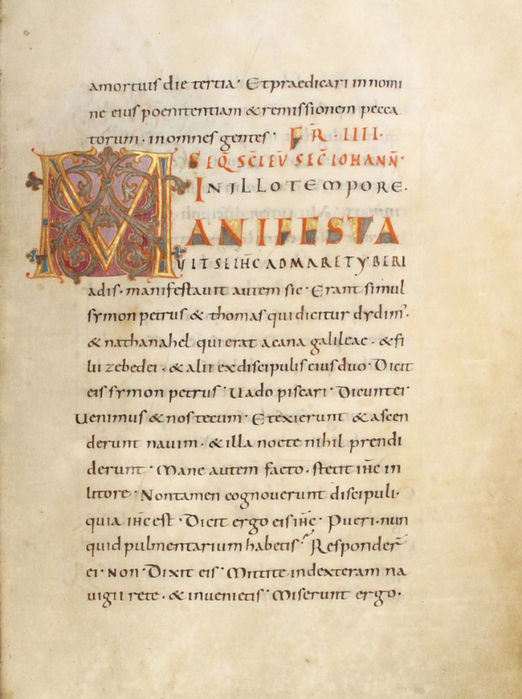 amortuis die tertia· Et praedicari in nomi
ne eius poenitentiam & remissionem pecca
torum· in omnes gentes· FR̄· IIII·
SEQ̄ S̄C̄I EṼ SEC̄ IOHANN̄·
IN ILLO TEMPORE·
MANIFESTA
VIT SE IHC̄ AD MARE TYBERI
adis· manifestavit autem sic· Erant simul
symon petrus & thomas qui dicitur dydim'·
& nathanahel qui erat a cana galileae· & fi
lii zebedei· & alii ex discipulis eius duo· Dicit
eis symon petrus· Uado piscari· Dicunt ei
Uenimus & nos tecum· Et exierunt & ascen
derunt navim· & illa nocte nihil prendi
derunt· Mane autem facto· stetit ihc̄ in
litore· Non tamen cognoverunt discipuli·
quia ihc̄ est· Dicit ergo eis ihc̄· Pueri· nun
quid pulmentarium habetis· Responder̄
ei· NON· Dixit eis· Mittite in dexteram na
vigii rete· & invenietis· Miserunt ergo·